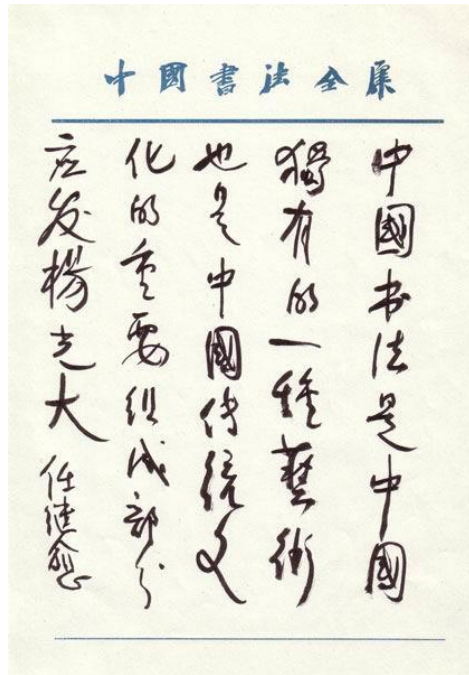 中國書法全集
中國书法是中國
獨有的一種藝術
也是中國傳統文
化的重要组成部分
应发揚光大
任继愈